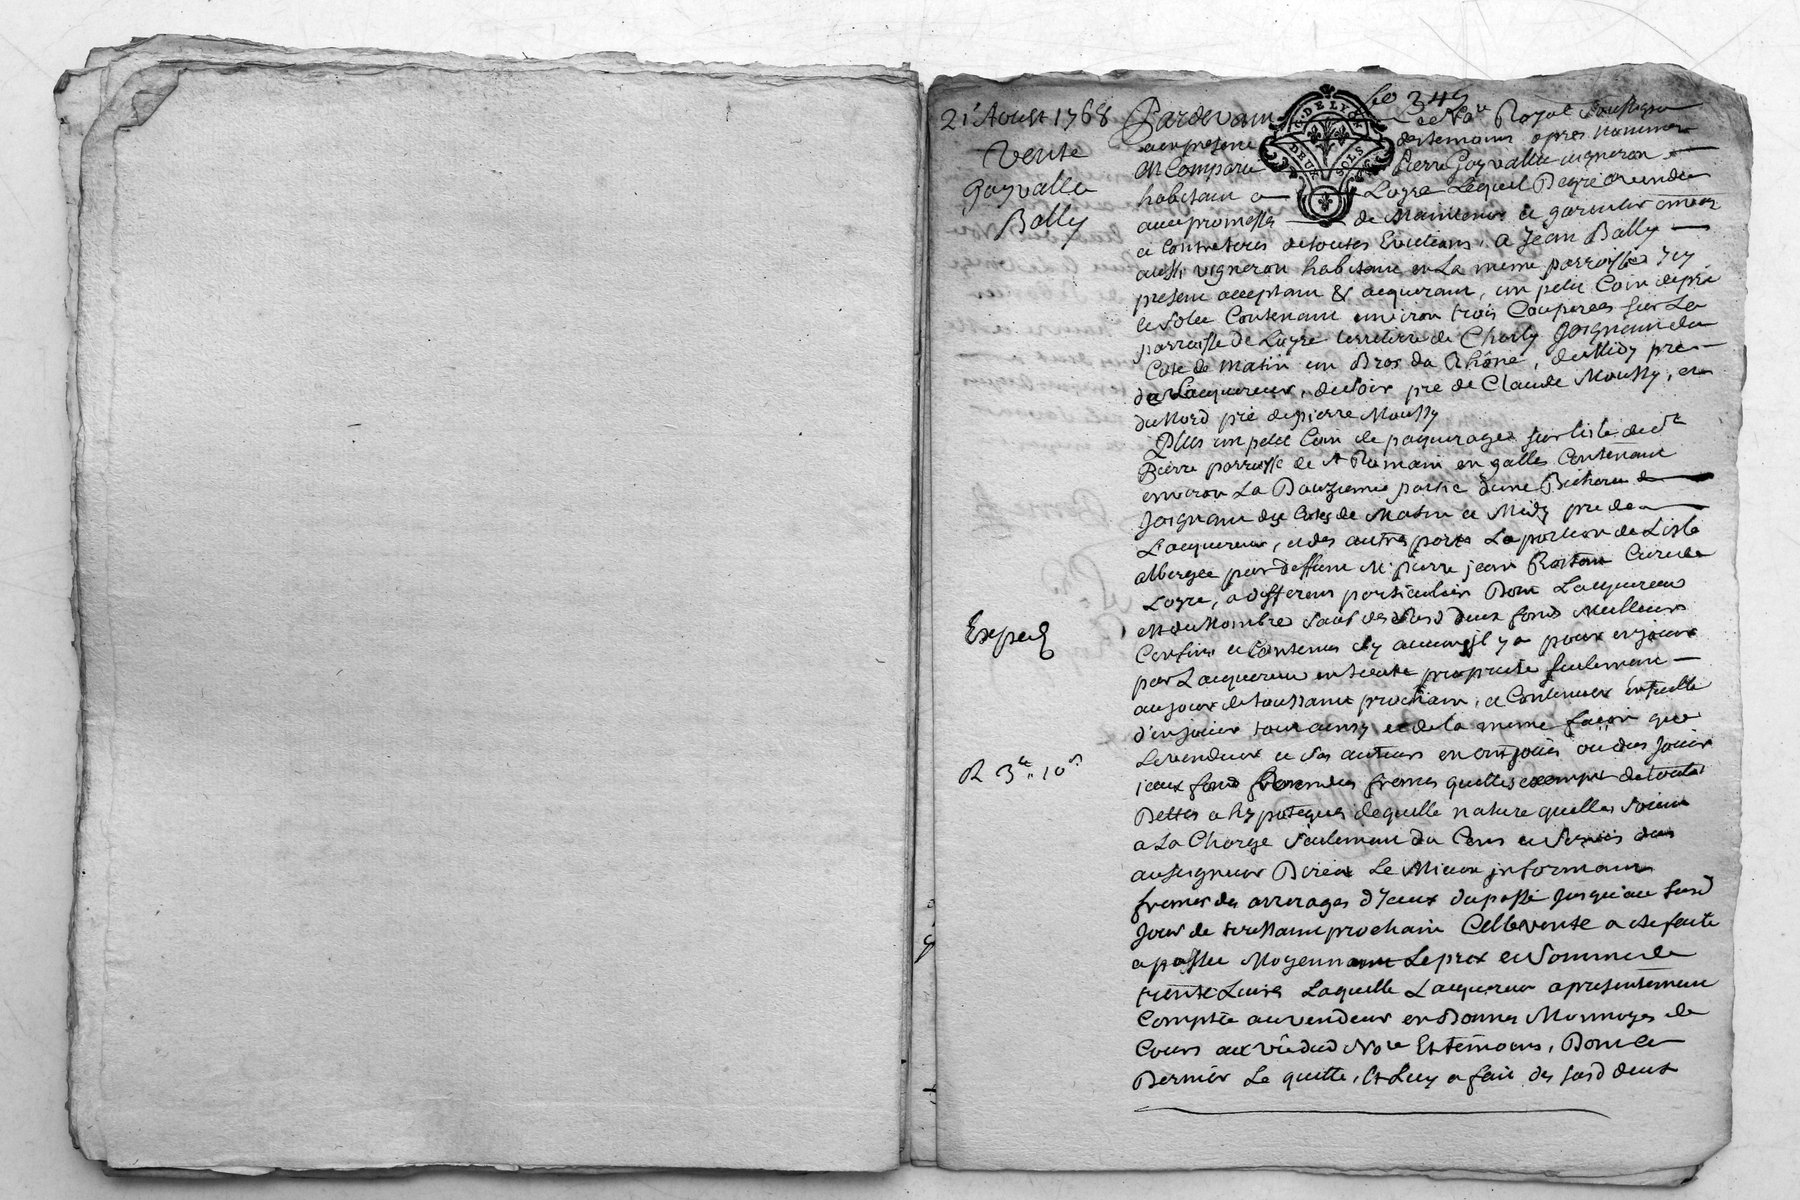 21 Aoust 1768
Vente
Gayvalla
Bally
Exped
R 3tt 10s
fo 349
G. DE LYON
DEUX SOLS
Pardevant le Nore Royal soussigné
et en presence des temoins apres nommes
Est Comparu Pierre Gayvalla vigneron
habitant a Loyre Lequel De gré a vendu
avec promesse de Maintenir et garentir envers
et Contre tous de toutes Evictions, A Jean Bally
aussi vigneron habitant en La meme parroisse icy
present acceptant & acquerant, un petit Coin de pré
situé Contenant environ trois Couperées sur La
parroisse de Loyre territoire de Charly Joignant du
Coté de matin un Bras du Rhône, du Midy pré
de L'acquereur, du soir pré de Claude Moussy, et
du Nord pré de pierre Moussy
Plus un petit Coin de paquerage sur l'isle de St
Pierre parroisse de st Romain en galles Contenant
environ La Douzieme partie d'une Bicherée
Joignant des Cotés de Matin et Midy pré de
L'acquereur, et des autres parts La portion de L'isle
albergée par deffunt Mre pierre jean Curé de
Loyre, a differens particuliers Dont L'acquereur
est du Nombre, sauf desdits deux fonds Meilleurs
Confins et Contenus s'y aucuns il y a pour en jouir
par L'acquereur en toute proprieté seulement
au jour de toussaint prochain, et Continuer ensuitte
d'en jouir tout ainsy et de la meme façon que
Le vendeur et ses auteurs en ont jouis ou dus jouir
iceux fonds francs quittes exempts de toutes
Dettes et hypoteques de quelle nature quelles soient
a La Charge seulement du Cens et Servis dus
au seigneur Direct Le Mieux informant
francs des arrerages d'iceux du passé Jusqu'au susd
Jour de toussaint prochain Cette vente a eté faite
et passée Moyennant Le prix et somme de
trente Livres Laquelle L'acquereur a presentement
Comptée au vendeur en Bonnes Monnoyes de
Cours au vû dud Nore Et temoins, Dont Ce
Dernier Le quitte, Et Luy a fait des susd deux